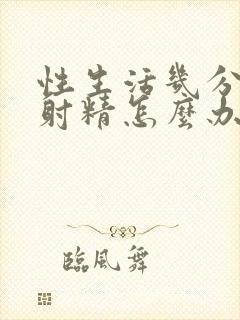 性生活幾分
射精怎麼办
臨風舞